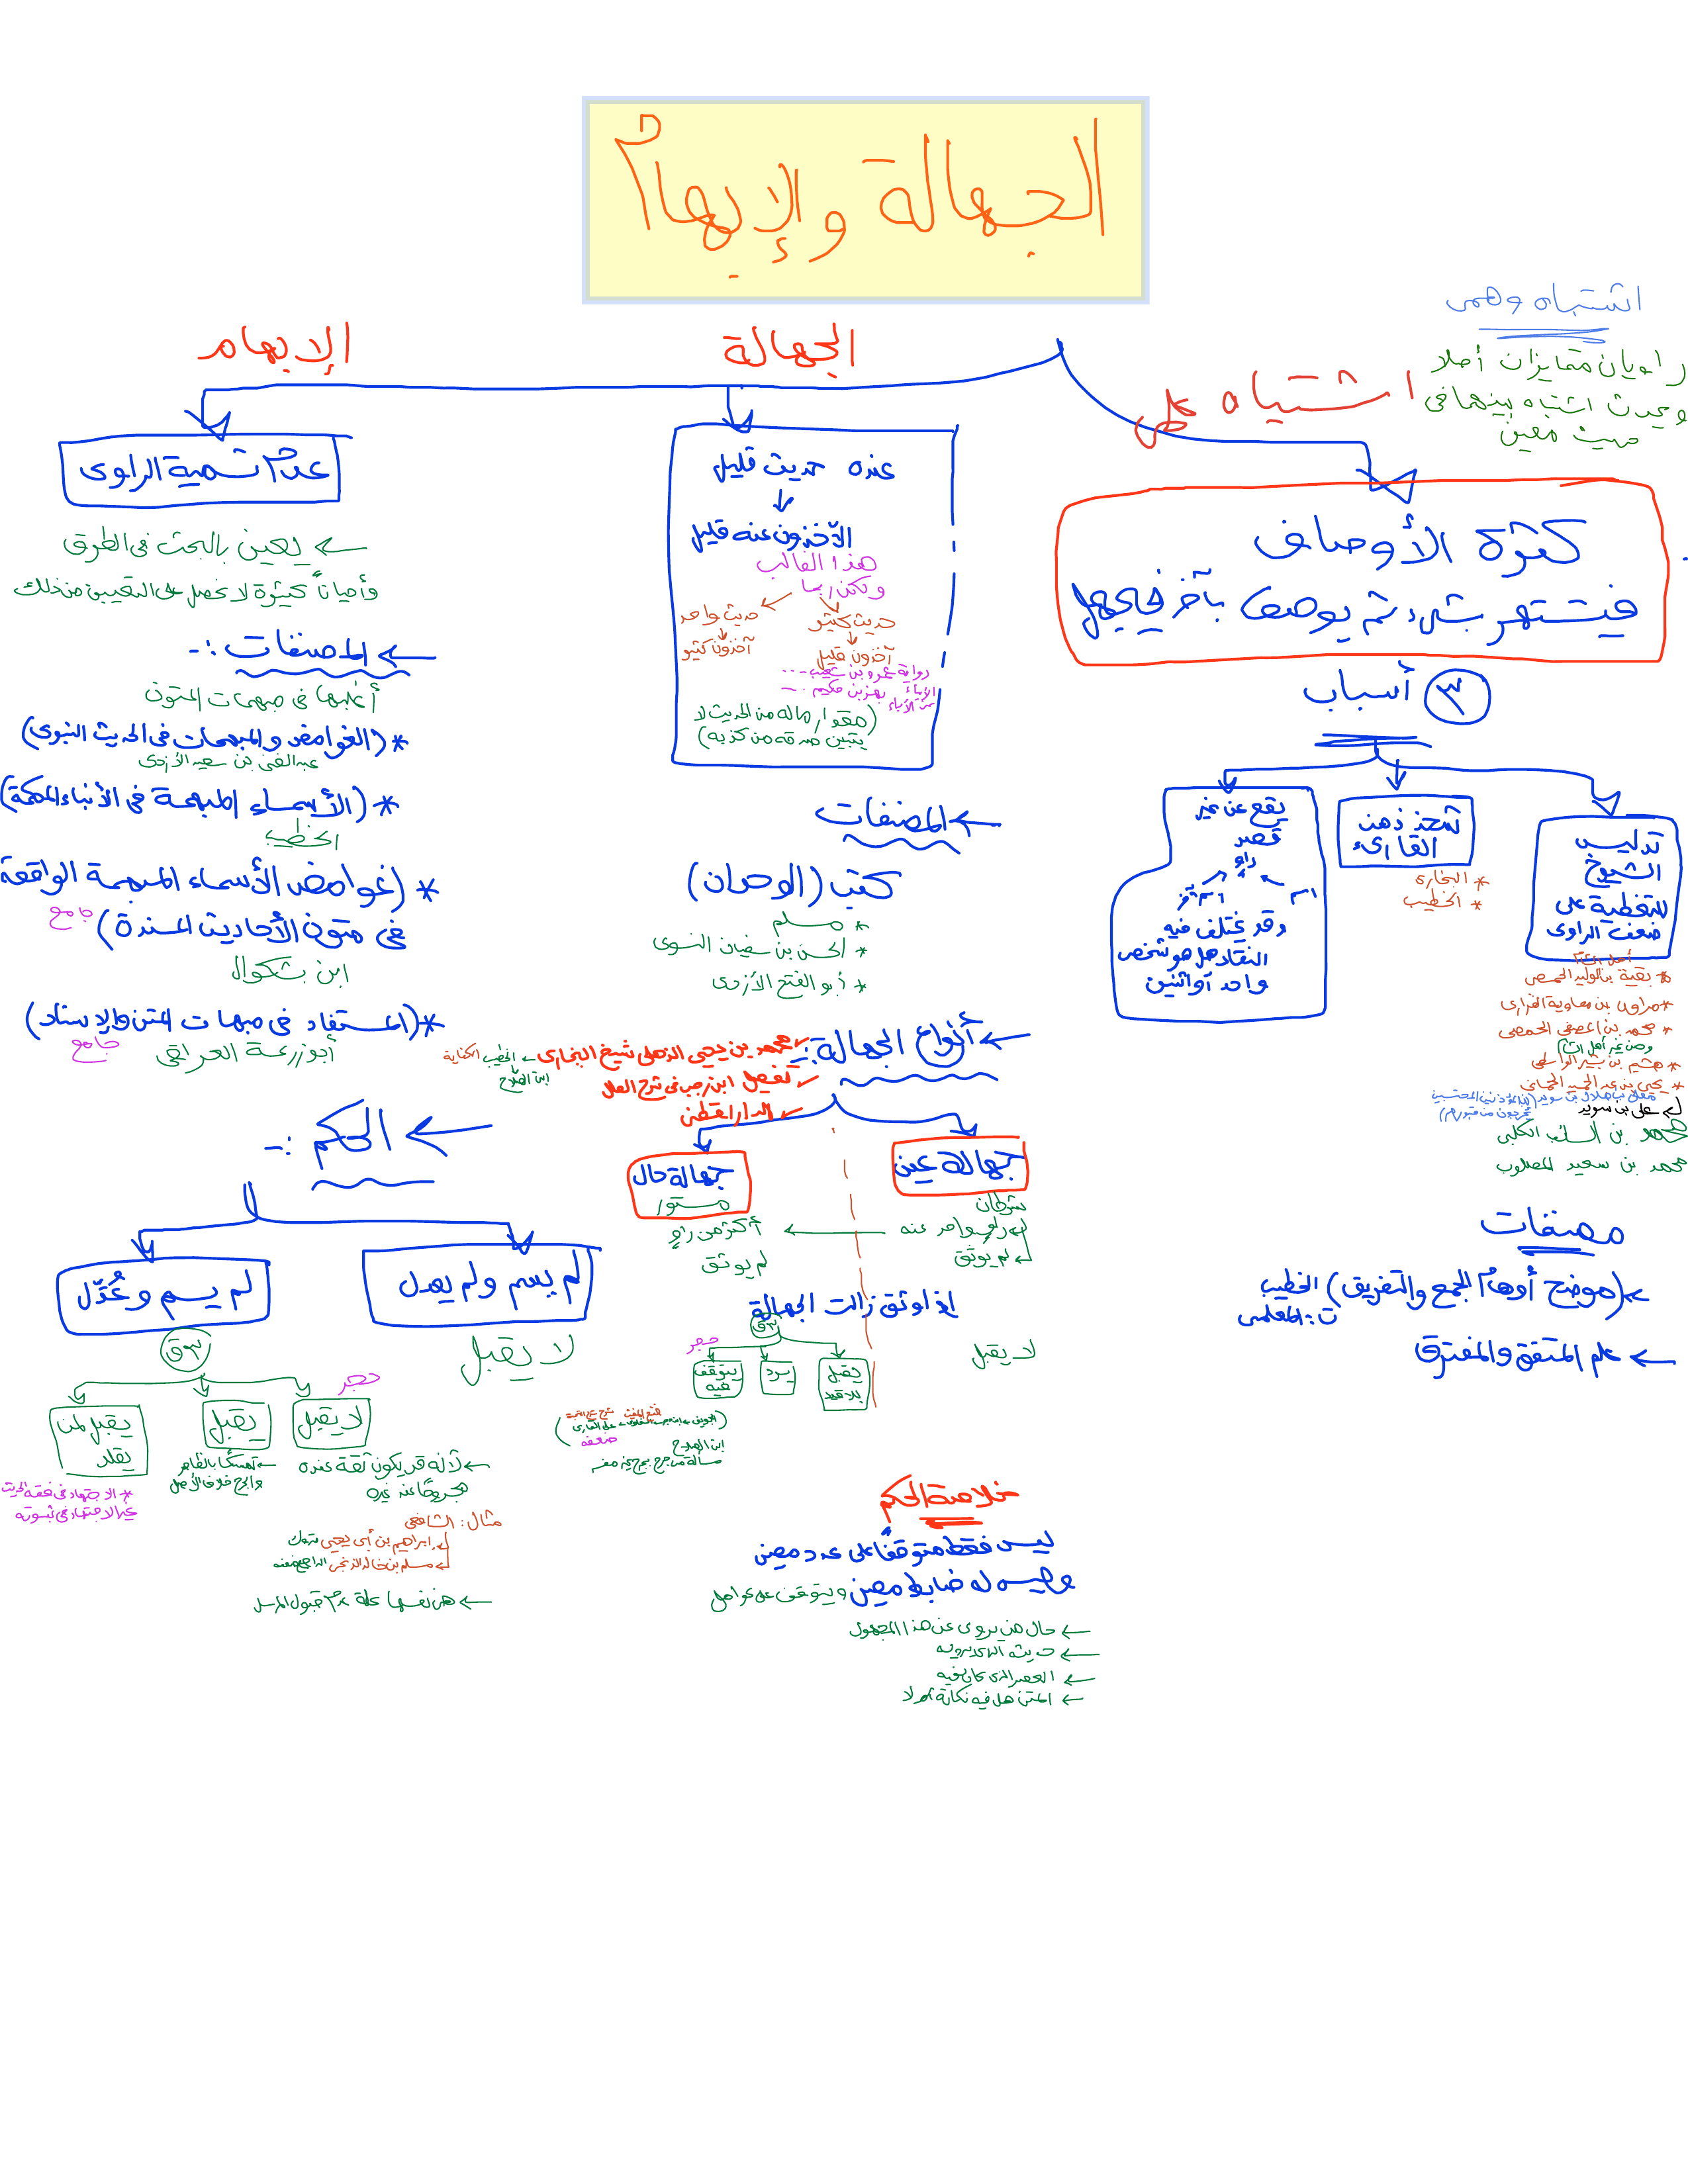 الجهالة والإبهام
اشتباه وهمى
راويان متمايزان أصلا
ويحدث اشتباه بينهما فى
حديث معين
اشتباه على
كثرة الأوصاف
فيشتهر بشىء ثم يوصف بآخر فيجهل
٣ أسباب
تدليس
الشيوخ
للتغطية على
ضعف الراوى
أهل الشام
* بقية بن الوليد الحمصى
* مروان بن معاوية الفزارى
* محمد بن المصفى الحمصى
ومن غير أهل الشام
* هشيم بن بشير الواسطى
* يحيى بن عبد الحميد الحمانى
على بن سويد
محمد بن السائب الكلبى
محمد بن سعيد المصلوب
شحذ ذهن
القارىء
* البخارى
* الخطيب
يقع عن غير
قصد
راو
اسم
اسم آخر
وقد يختلف فيه
النقاد هل هو شخص
واحد أو اثنين
مصنفات
(موضح أوهام الجمع والتفريق) الخطيب
ت: المعلمى
علم المتفق والمفترق
الجهالة
عنده حديث قليل
الآخذون عنه قليل
هذا الغالب
ولكن ربما
حديث كثير
آخذون قليل
حديث واحد
آخذون كثير
رواية عمرو بن شعيب ...
الأبناء بهز بن حكيم ...
عن الآباء
(مقدار ماله من الحديث لا
يتبين صدقه من كذبه)
المصنفات
كتب (الوحدان)
* مسلم
* الحسن بن سفيان النسوى
* أبو الفتح الأزدى
أنواع الجهالة :-
محمد بن يحيى الذهلى شيخ البخارى
الخطيب الكفاية
ابن الصلاح
تفصيل ابن رجب فى شرح العلل
الدارقطنى
جهالة عين
شرطان
راو واحد عنه
لم يوثق
لا يقبل
جهالة حال
مستور
أكثر من راو
لم يوثق
إذا وثق زالت الجهالة
٣ق
يقبل
بلا قيد
يرد
حجر
يتوقف
فيه
ابن الصلاح
ضعفه
خلاصة الحكم
ليس فقط متوقفا على عدد معين
وليس له ضابط معين ويتوقف على عوامل
حال من يروى عن هذا المجهول
حديثه الذى يرويه
العصر الذى كان فيه
المتن هل فيه نكارة أم لا
الإبهام
عدم تسمية الراوى
يعين بالبحث فى الطرق
وأحيانا كثيرة لا نحصل على التعيين من ذلك
المصنفات :-
أغلبها فى مبهمات المتون
* (الغوامض والمبهمات فى الحديث النبوى)
عبد الغنى بن سعيد الأزدى
* (الأسماء المبهمة فى الأنباء المحكمة)
الخطيب
* (غوامض الأسماء المبهمة الواقعة
فى متون الأحاديث المسندة) جامع
ابن بشكوال
* (المستفاد فى مبهمات المتن والإسناد)
أبو زرعة العراقى جامع
الحكم :-
لم يسم ولم يعدل
لا يقبل
لم يسم وعُدِّل
٣ق
حجر
لا يقبل
لأنه قد يكون ثقة عنده
مجروحًا عند غيره
مثال: الشافعى
إبراهيم بن أبى يحيى متروك
مسلم بن خالد الزنجى الراجح ضعفه
هى نفسها علة عدم قبول المرسل
يقبل
تمسكًا بالظاهر
والجرح خلاف الأصل
يقبل لمن
يقلد
* الاجتهاد فى فقه الحديث
غير الاجتهاد فى ثبوته